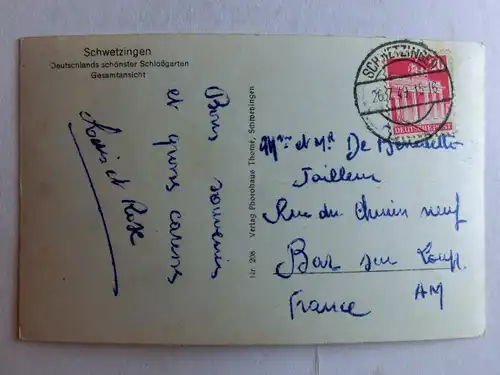 Schwetzingen
Deutschlands schönster Schloßgarten
Gesamtansicht
Bons souvenirs
et gros caresses
et Rose
Nr. 206 Verlag Photohaus Thomé, Schwetzingen
SCHWETZINGEN
20
DEUTSCHE POST
Mme et Mr De Benedetti
Tailleur
Rue du Chemin neuf
Bar sur Loup.
AM
France